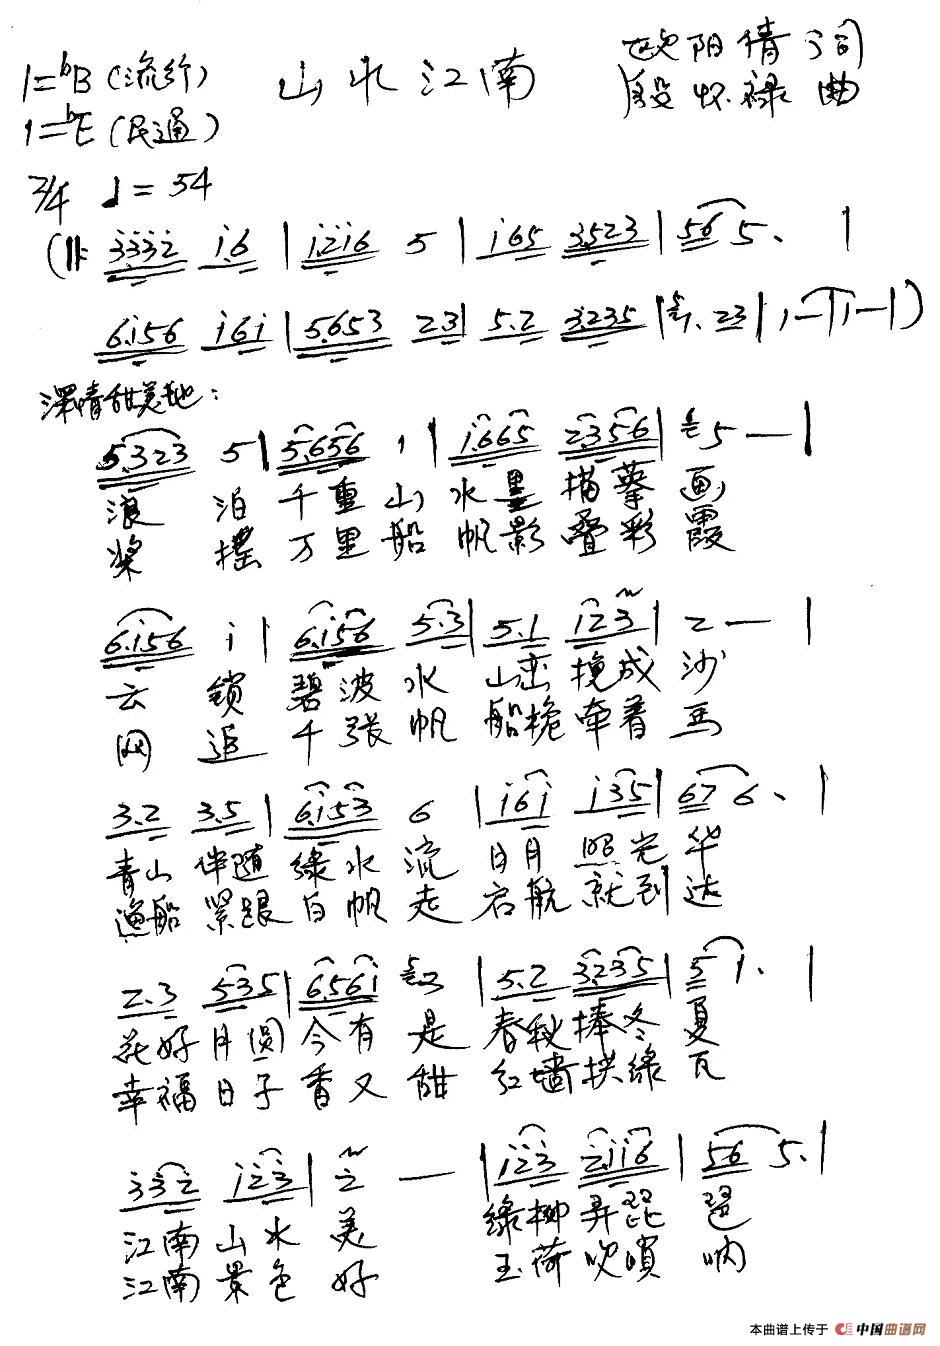 1=bB（流行） 山水江南 欧阳倩词
1=bE（民通） 段怀禄曲
2/4 ♩=54
(‖: 3332 i.6 | i2i6 5 | i65 3523 | 56 5. |
6.i56 i6i | 5.653 23 | 5.2 3235 | 1. 23 | 1— | 1— | )
深情甜美地：
5.323 5 | 5.656 1 | i.665 2356 | 5 — |
浪 泊 千重山 水墨描摹 画
桨 摇 万里船 帆影叠彩 霞
6.i56 i | 6.i56 5.3 | 5.1 i23 | 2 — |
云 锁 碧波水 山峦挽成 沙
网 追 千张帆 船桅牵着 马
3.2 3.5 | 6.i53 6 | i6i i35 | 67 6. |
青山 伴随 绿水 流 日月 照光 华
渔船 紧跟 白帆 走 启航 就到 达
2.3 535 | 6.56i 3 | 5.2 3235 | 5 1. |
花好 月圆 今有 是 春秋 捧冬 夏
幸福 日子 香又 甜 红墙 拱绿 瓦
332 i23 | 2 — | i23 2ii6 | 56 5. |
江南 山水 美 绿柳 弄琵 琶
江南 景色 好 玉荷 吹唢 呐
本曲谱上传于 中国曲谱网